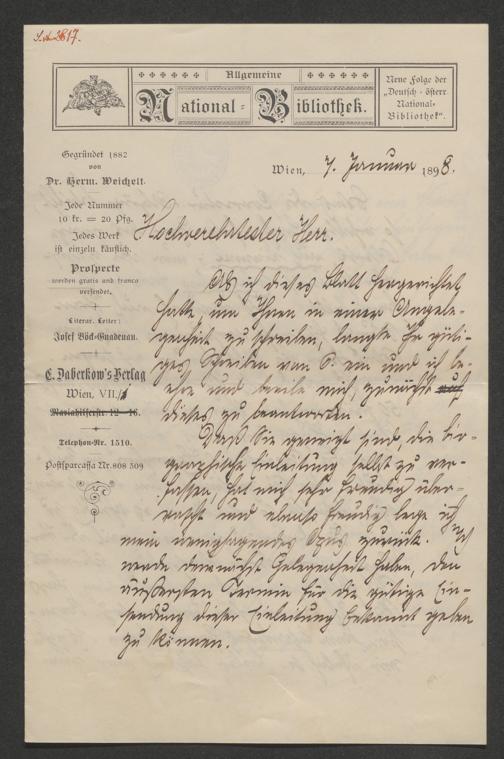 Allgemeine
National-Bibliothek.
Neue Folge der
„Deutsch-österr.
National-
Bibliothek“.
Gegründet 1882
von
Dr. Herm. Weichelt.
Jede Nummer
10 kr. = 20 Pfg.
Jedes Werk
ist einzeln käuflich.
Prospecte
werden gratis und franco
versendet.
Literar. Leiter:
Josef Böck-Gnadenau.
C. Daberkow's Verlag
Wien, VII./
Mariahilferstr. 12-16.
Telephon-Nr. 1510.
Postsparcassa Nr. 808 509
Wien, 7. Januar 1898.
Hochverehrtester Herr.
Als ich dieses Blatt hergerichtet
hatte, um Ihnen in einer Angele-
genheit zu schreiben, langte Ihr güti-
ges Schreiben vom 5. ein und ich be-
eile mich, zunächst
dieses zu beantworten.
Daß Sie geneigt sind, die bio-
graphische Einleitung selbst zu ver-
fassen, hat mich sehr freudig über-
rascht und ebenso freudig lege ich
mein Opus zurück. Ich
werde demnächst Gelegenheit haben, den
äußersten Termin für die gütige Ein-
sendung dieser Einleitung bekannt geben
zu können.